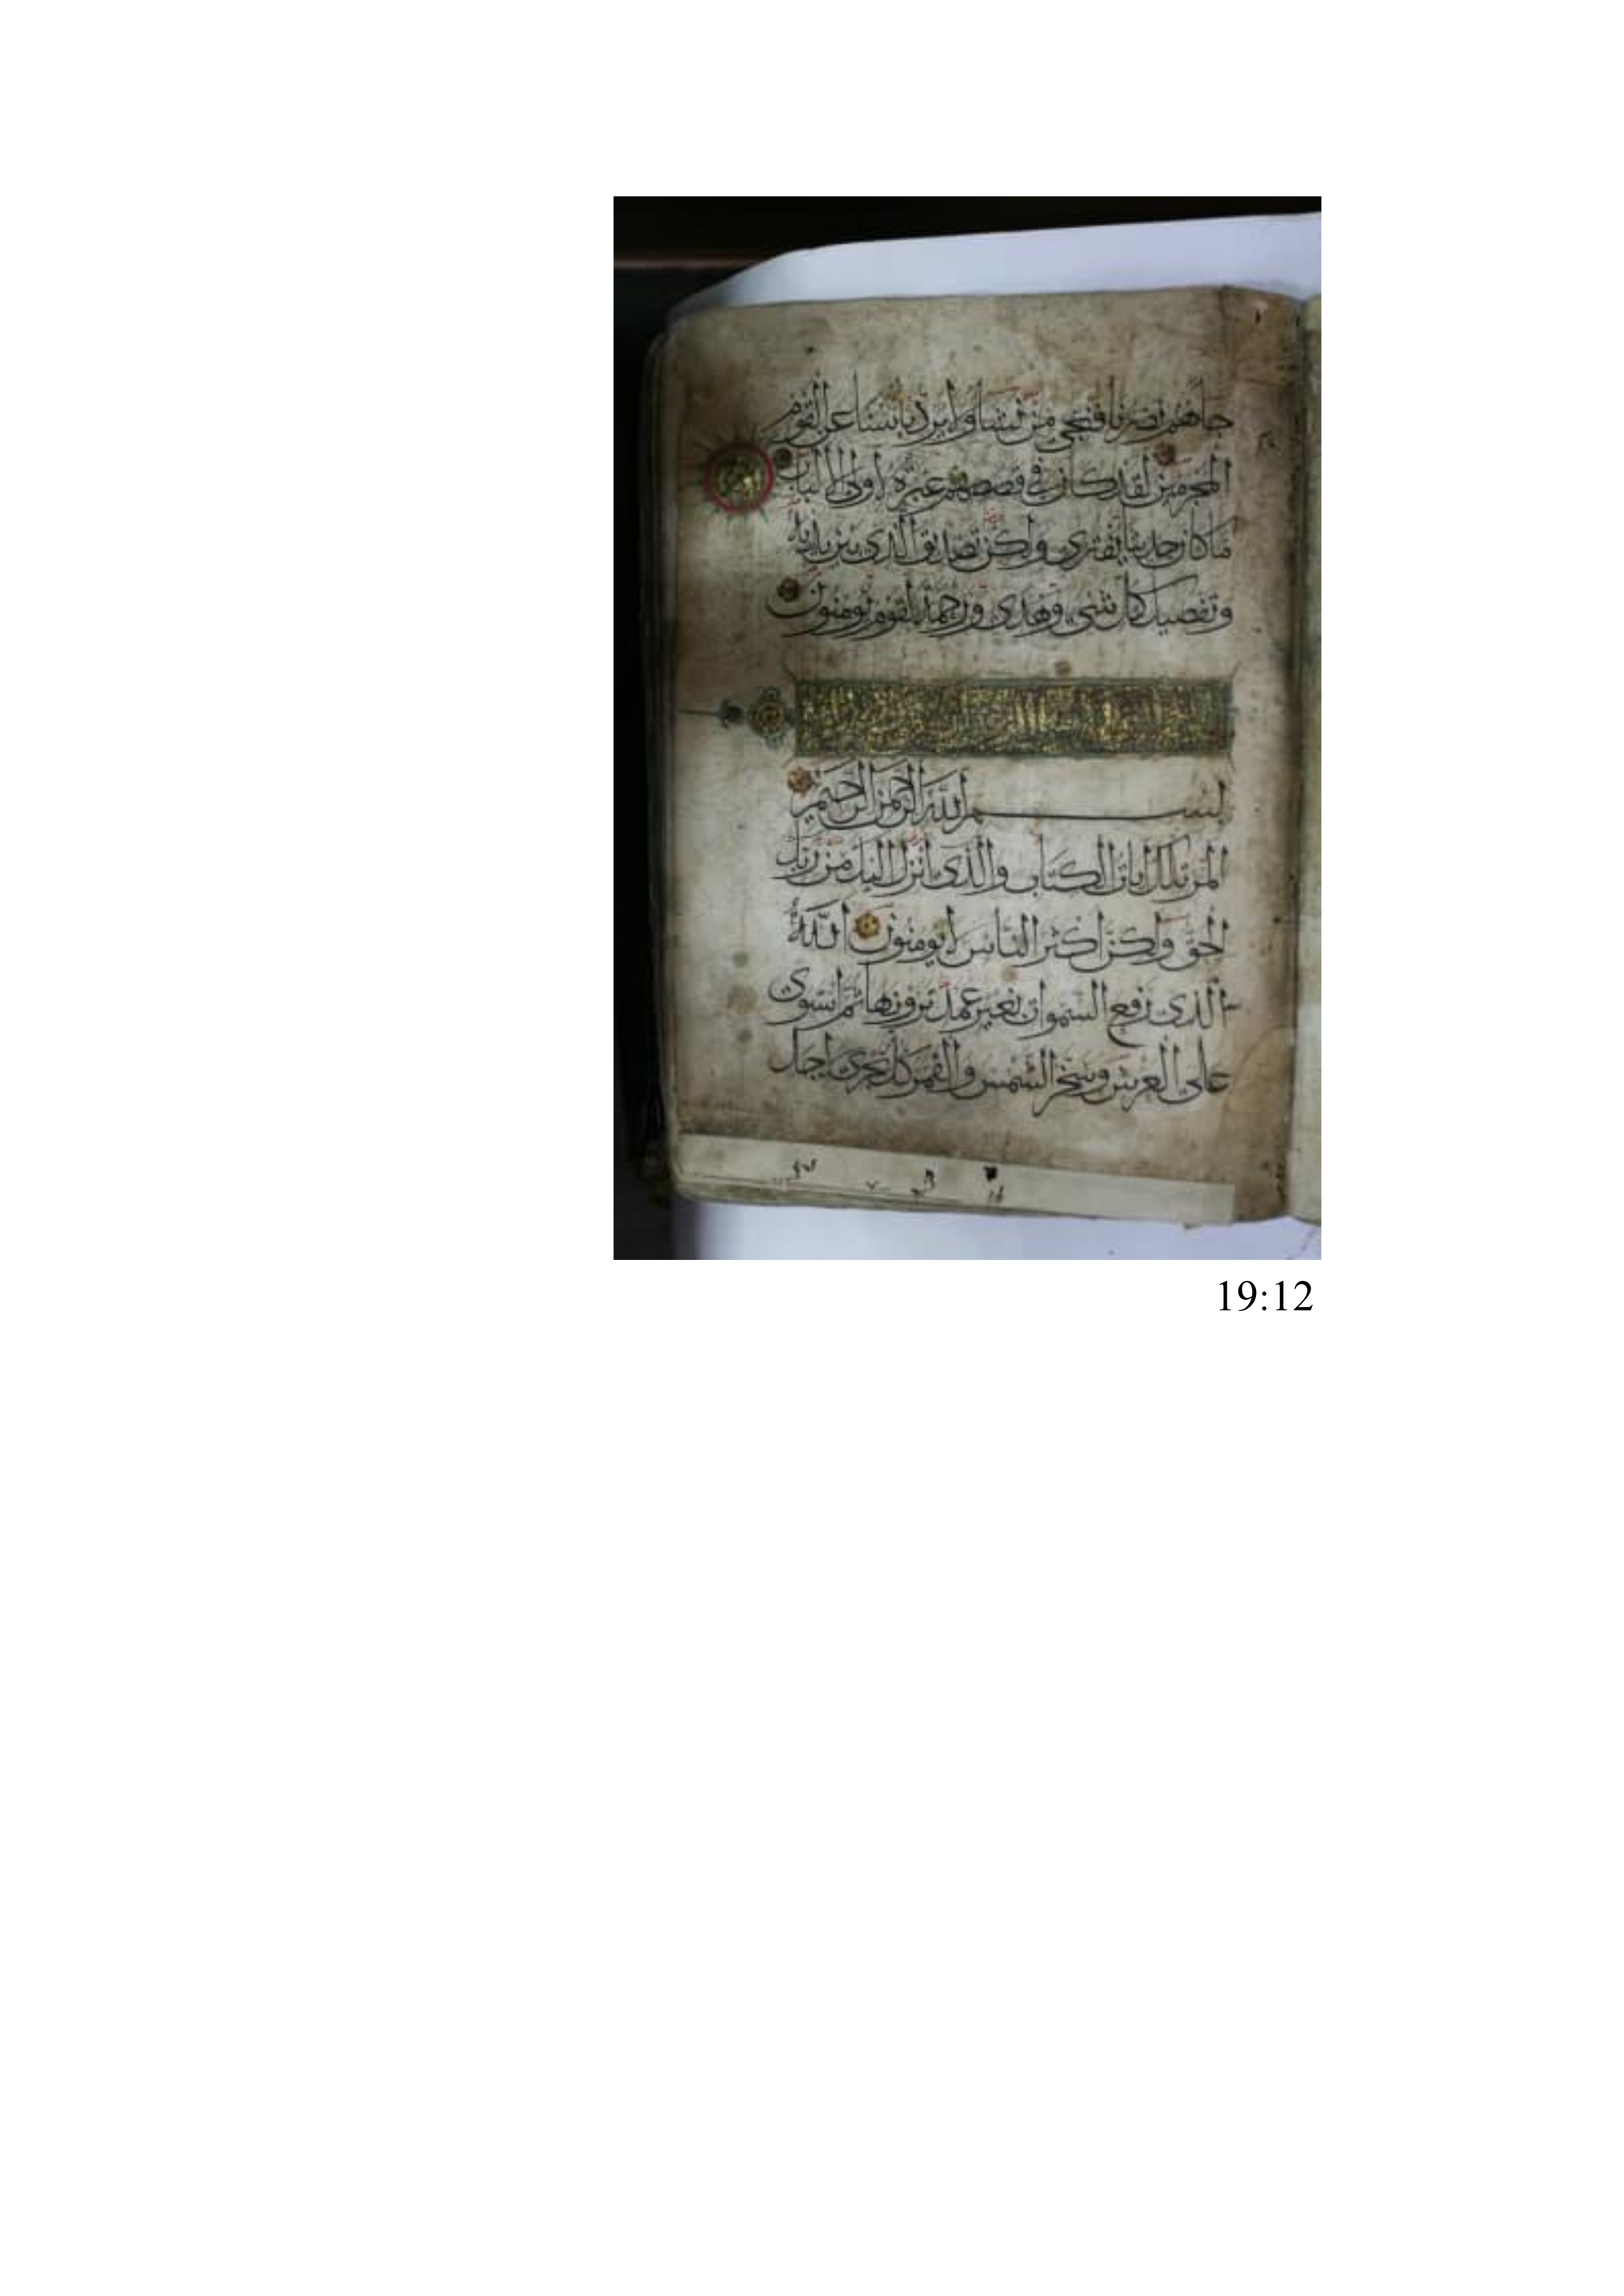 جاهم نصرنا فنجى من نشا ولا يرد باسنا عن القوم
المجرمين لقد كان فى قصصهم عبرة لاولى الالباب
ما كان حديثا يفترى ولكن تصديق الذى بين يديه
وتفصيل كل شى وهدى ورحمة لقوم يومنون
بسم الله الرحمن الرحيم
المر تلك ايات الكتاب والذى انزل اليك من ربك
الحق ولكن اكثر الناس لا يومنون الله
الذى رفع السموات بغير عمد ترونها ثم استوى
على العرش وسخر الشمس والقمر كل يجرى لاجل
19:12